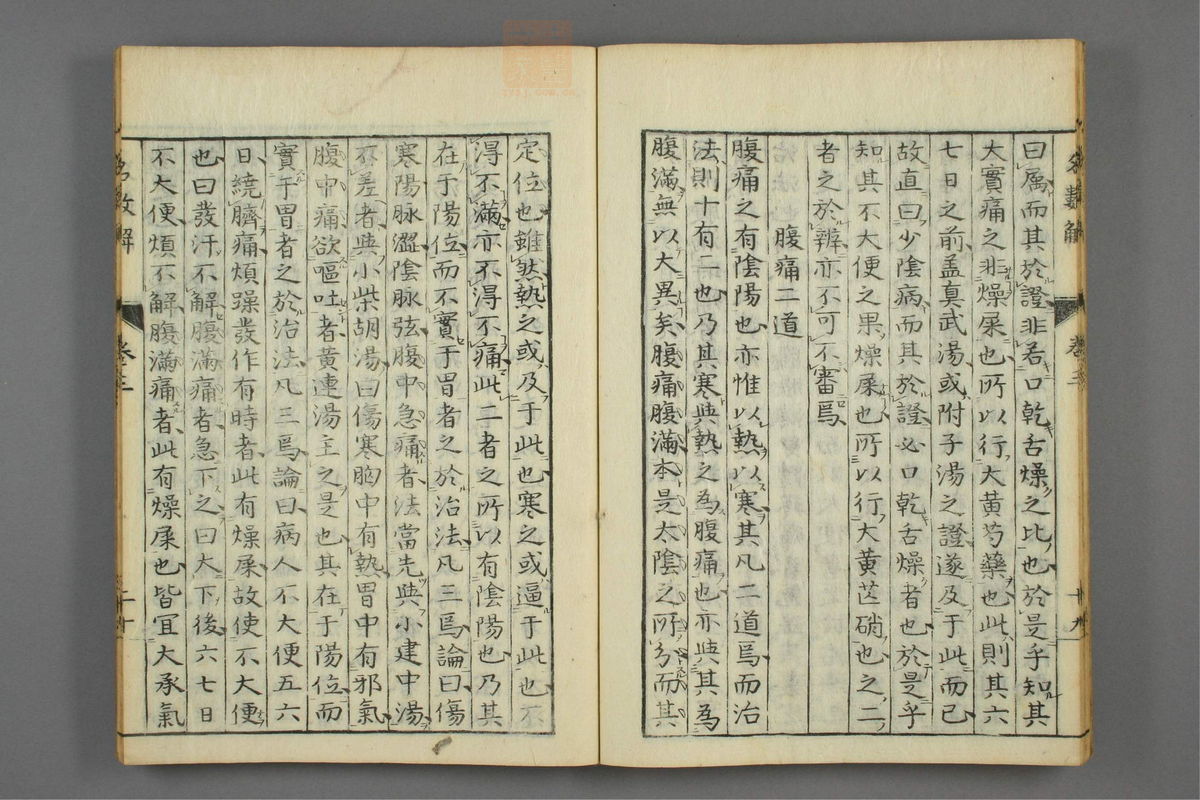 曰厲而其於證非若口乾舌燥之比也於是乎知其
大實痛之非燥屎也所以行大黃芍藥也此則其六
七日之前孟真武湯或附子湯之證遂及于此而已
故直曰少陰病而其於證必口乾舌燥者也於是乎
知其不大便之果燥屎也所以行大黃芒硝也之二
者之於辨亦不可不審焉
腹痛二道
腹痛之有陰陽也亦惟以熱以寒其凡二道焉而治
法則十有二也乃其寒與熱之為腹痛也亦與其為
腹滿無以大異矣腹痛腹滿本是太陰之所分而其
定位也雖然熱之或及于此也寒之或逼于此也不
得不滿亦不得不痛此二者之所以有陰陽也乃其
在于陽位而不實于胃者之於治法凡三焉論曰傷
寒陽脉澀陰脉弦腹中急痛者法當先與小建中湯
不差者與小柴胡湯曰傷寒胸中有熱胃中有邪氣
腹中痛欲嘔吐者黃連湯主之是也其在于陽位而
實于胃者之於治法凡三焉論曰病人不大便五六
日繞臍痛煩躁發作有時者此有燥屎故使不大便
也曰發汗不解腹滿痛者急下之曰大下後六七日
不大便煩不解腹滿痛者此有燥屎也皆宜大承氣
名數解
卷三
二十